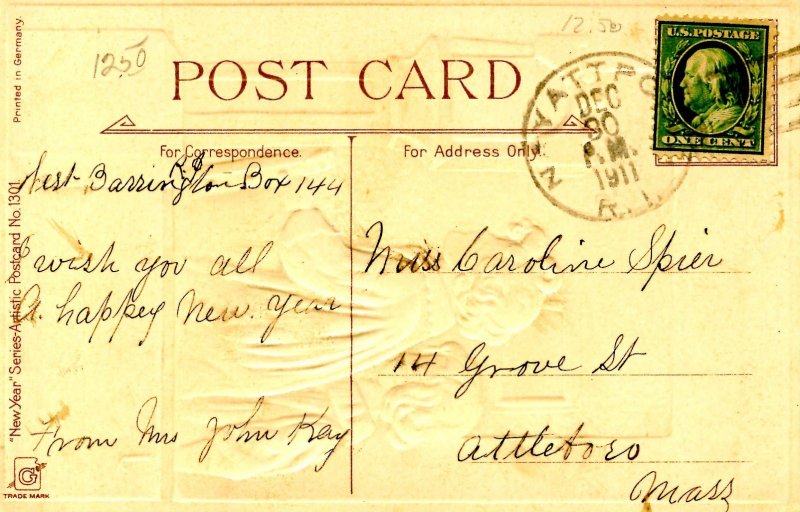 1250
12.50
POST CARD
U.S. POSTAGE
ONE CENT
NYATT
DEC
30
P.M.
1911
R.I.
For Correspondence.
For Address Only.
R I
West Barrington Box 144
I wish you all
A. happey New. Year
From Mrs John Kay
Miss Caroline Spier
14 Grove St
Attleboro
Mass
Printed in Germany.
"New Year" Series-Artistic Postcard No. 1301
G
TRADE MARK